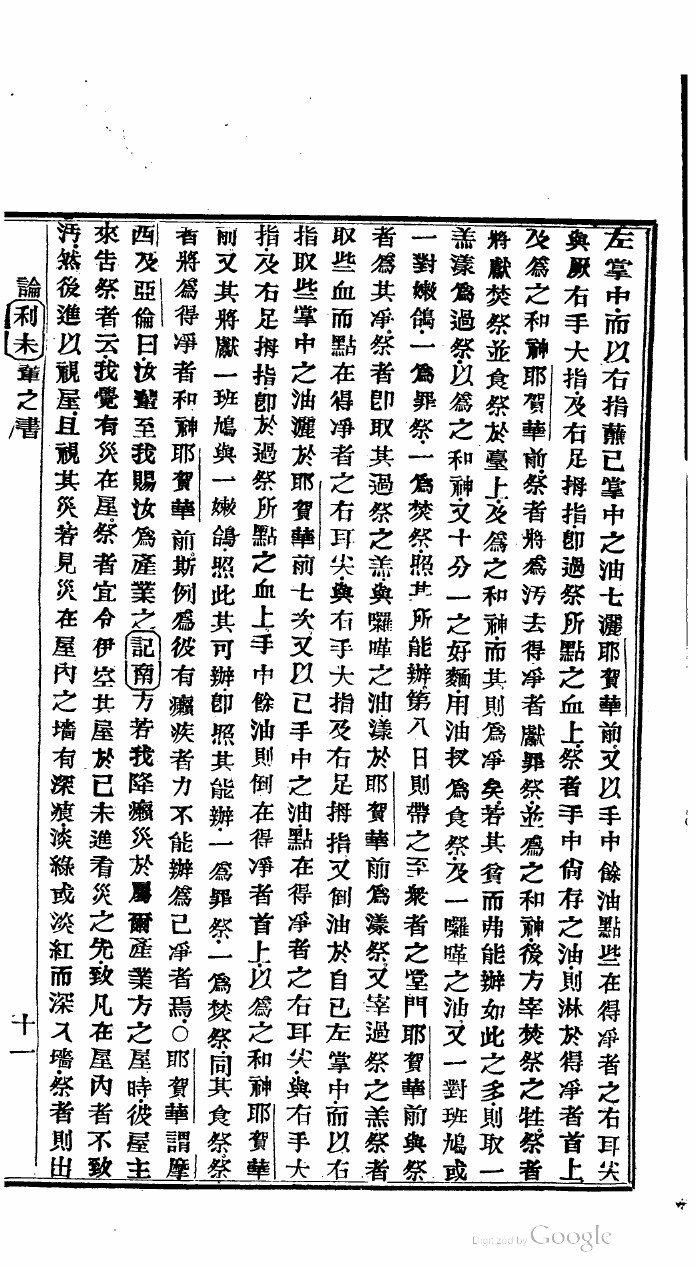 左掌中而以右指蘸己掌中之油七灑耶賀華前又以手中餘油點些在得凈者之右耳尖
與厥右手大指及右足拇指卽過祭所點之血上祭者手中尙存之油則淋於得凈者首上
及爲之和神耶賀華前祭者將爲汚去得凈者獻罪祭並爲之和神後方宰焚祭之牲祭者
將獻焚祭並食祭於臺上及爲之和神而其則爲凈矣若其貧而弗能辦如此之多則取一
羔漾爲過祭以爲之和神又十分一之好麵用油扠爲食祭及一囉嗶之油又一對班鳩或
一對嫩鴿一爲罪祭一爲焚祭照其所能辦第八日則帶之至衆者之堂門耶賀華前與祭
者爲其凈祭者卽取其過祭之羔與囉嗶之油漾於耶賀華前爲漾祭又宰過祭之羔祭者
取些血而點在得凈者之右耳尖與右手大指及右足拇指又倒油於自己左掌中而以右
指取些掌中之油灑於耶賀華前七次又以己手中之油點在得凈者之右耳尖與右手大
指及右足拇指卽於過祭所點之血上手中餘油則倒在得凈者首上以爲之和神耶賀華
前又其將獻一班鳩與一嫩鴿照此其可辦卽照其能辦一爲罪祭一爲焚祭同其食祭祭
者將爲得凈者和神耶賀華前斯例爲彼有癩疾者力不能辦爲己凈者焉○耶賀華謂摩
西及亞倫曰汝輩至我賜汝爲產業之記南方若我降癩災於屬爾產業方之屋時彼屋主
來告祭者云我覺有災在屋祭者宜令伊空其屋於己未進看災之先致凡在屋內者不致
汚然後進以視屋且視其災若見災在屋內之墻有深痕淡綠或淡紅而深入墻祭者則出
論利未輩之書
十一
Digitized by Google